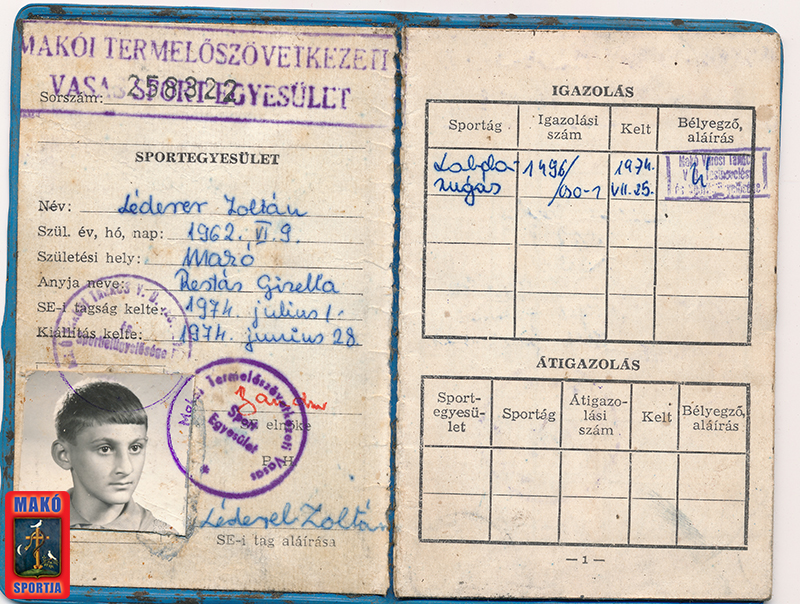 MAKÓI TERMELŐSZÖVETKEZETI
VASAS SPORT EGYESÜLET
Sorszám: 258322
SPORTEGYESÜLET
Név: Léderer Zoltán
Szül. év, hó, nap: 1962. VI. 9.
Születési hely: Makó
Anyja neve: Restás Gizella
SE-i tagság kelte: 1974. július 1.
Kiállítás kelte: 1974. június 28
Makói Termelőszövetkezeti Vasas
Sport
Egyesület
SE elnöke
P. H.
Léderer Zoltán
SE-i tag aláírása
MAKÓ
SPORTJA
IGAZOLÁS
Sportág
Igazolási szám
Kelt
Bélyegző, aláírás
Labdarúgás
1496/
/650-1
1974.
VII. 25.
Makó Városi Tanács
ÁTIGAZOLÁS
Sport-
egyesü-
let
Sportág
Átigazo-
lási
szám
Kelt
Bélyegző,
aláírás
— 1 —